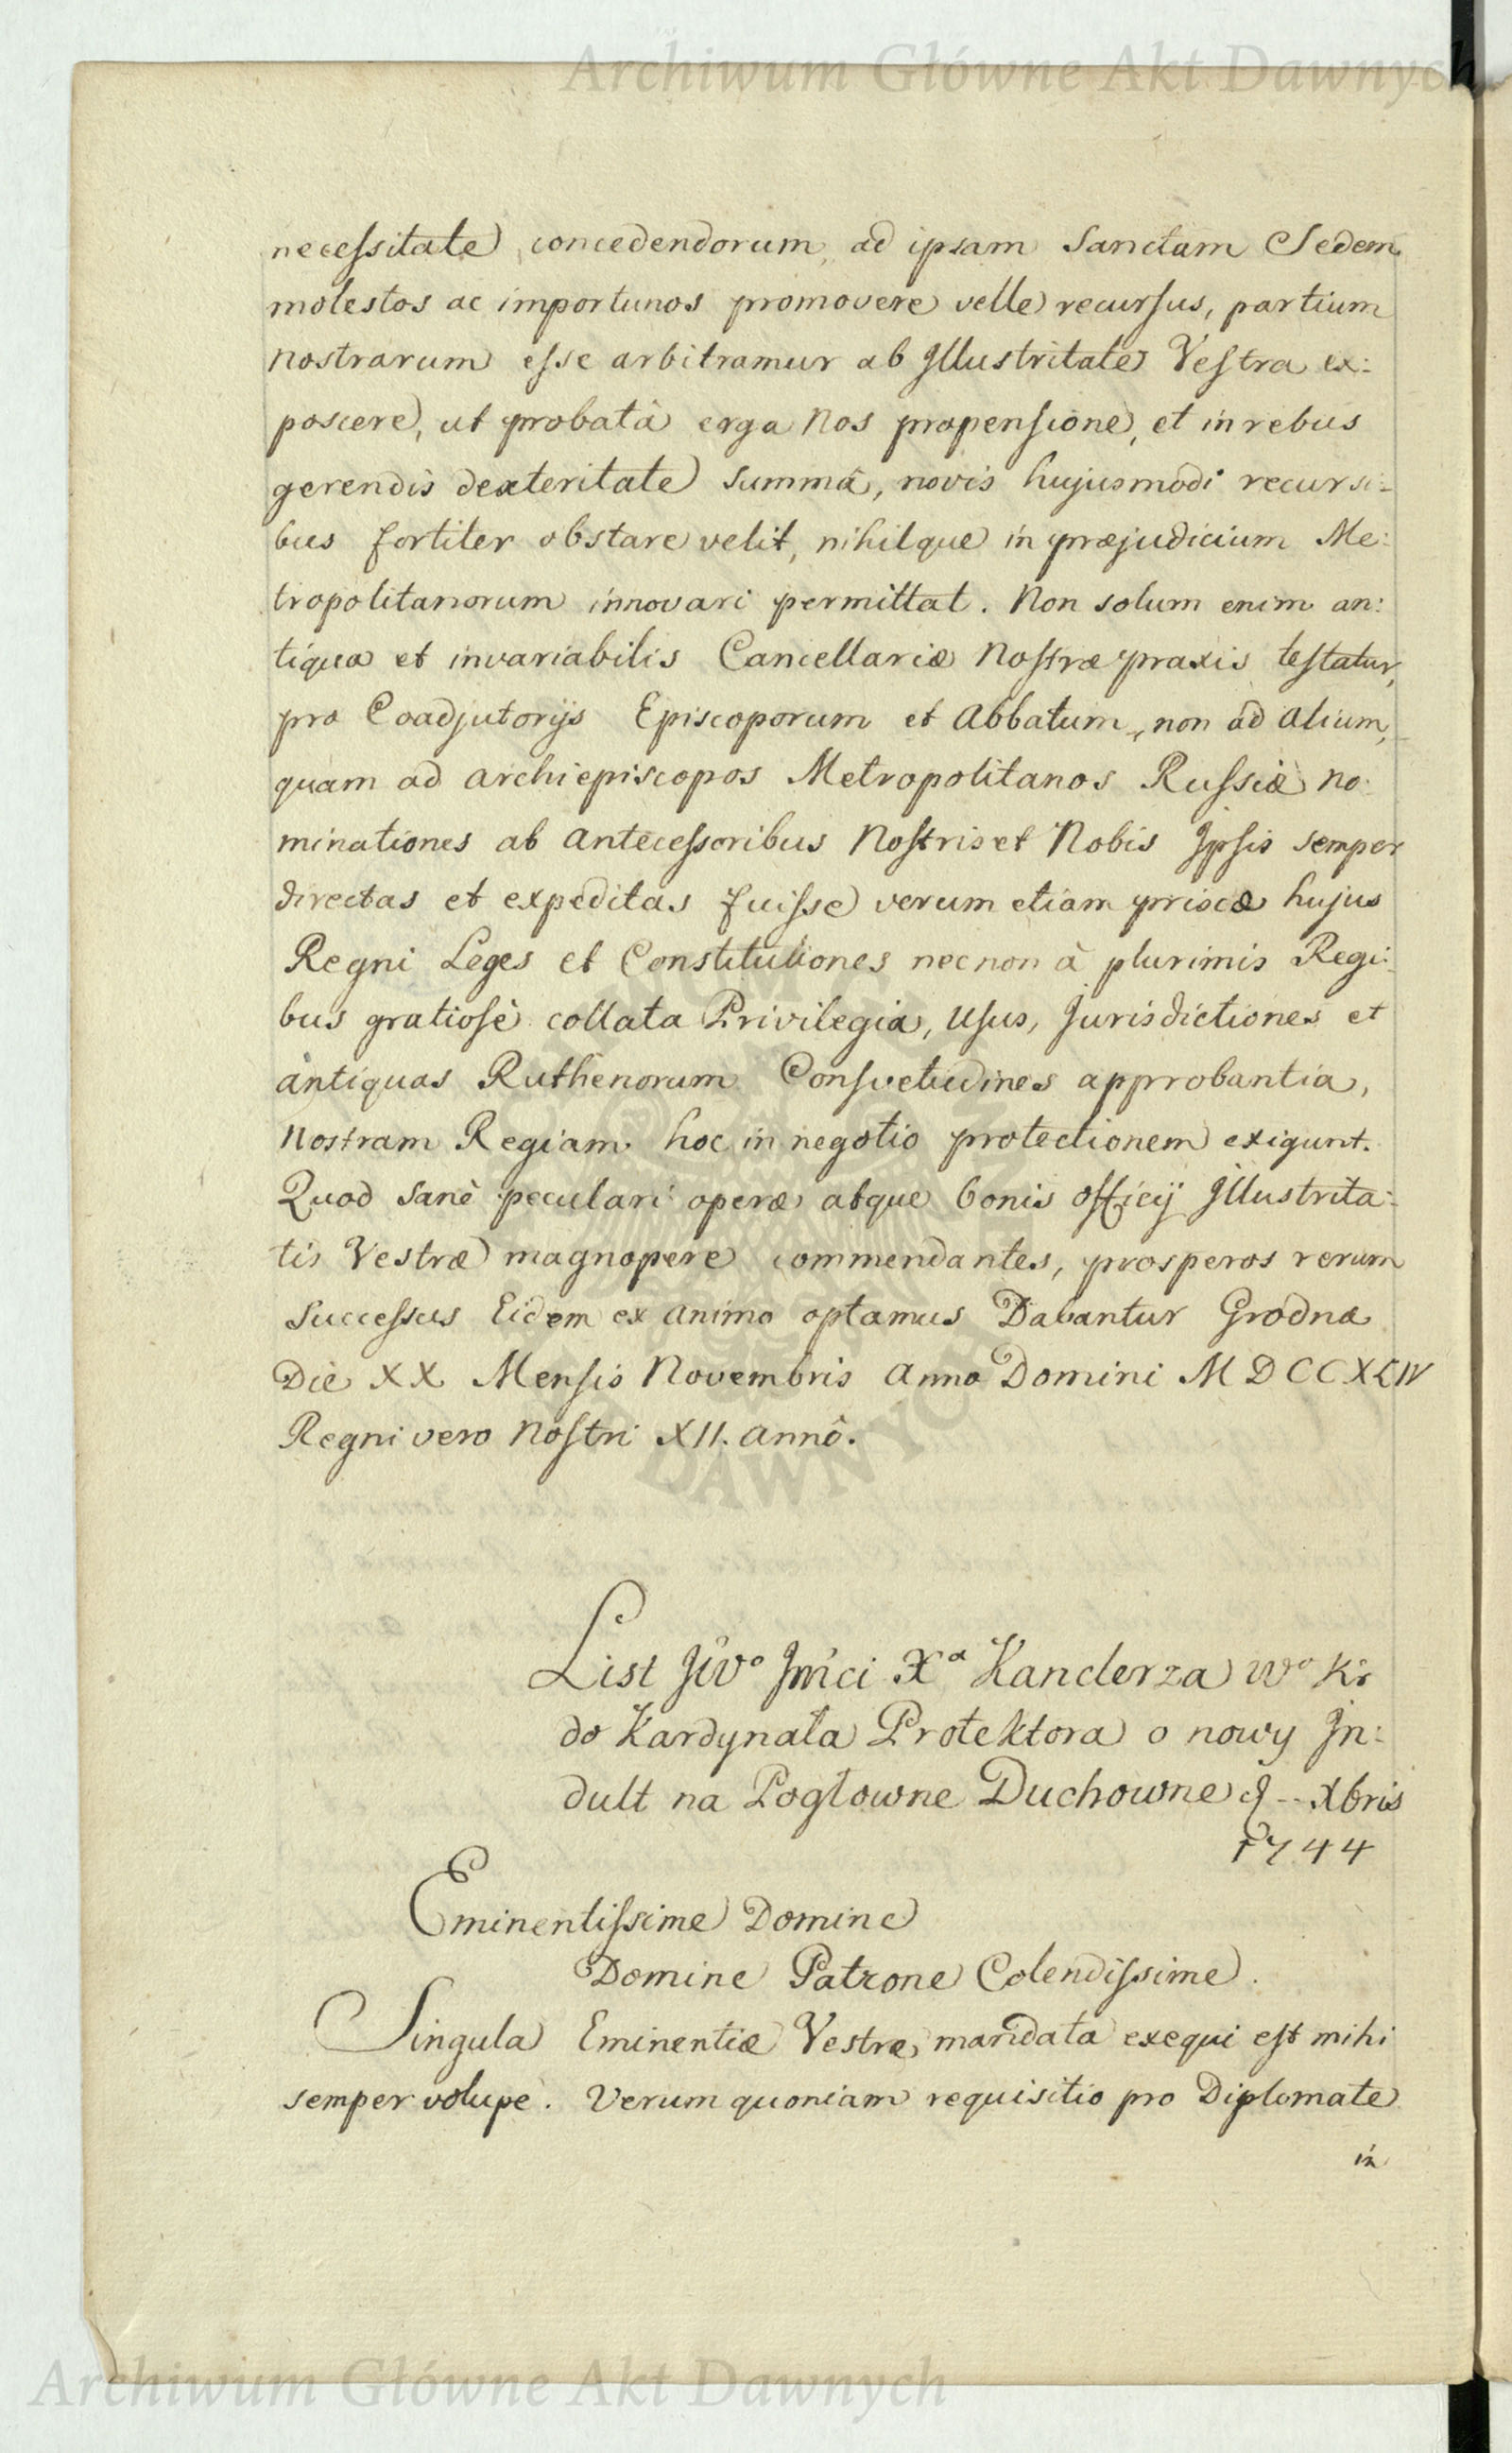 Archiwum Główne Akt Dawnych
necessitate concedendorum, ad ipsam Sanctam Sedem
molestos ac importunos promovere velle recursus, partium
nostrarum esse arbitramur ab Illustritate Vestra ex:
poscere, ut probatâ erga Nos propensione, et in rebus
gerendis dexteritate summâ, novis hujusmodi recursi=
bus fortiter obstare velit, nihilque in præjudicium Me:
tropolitanorum innovari permittat. Non solum enim an:
tiqua et invariabilis Cancellariæ Nostræ praxis testatur,
pro Coadjutorijs Episcoporum et Abbatum, non ad alium,
quam ad archiepiscopos Metropolitanos Russiæ no:
minationes ab antecessoribus Nostris et Nobis Ipsis semper
directas et expeditas fuisse verum etiam priscæ hujus
Regni Leges et Constitutiones necnon à plurimis Regi:
bus gratiosè collata Privilegia, Usus, Jurisdictiones et
antiquas Ruthenorum Consvetudines approbantia,
Nostram Regiam hoc in negotio protectionem exigunt.
Quod sanè peculari operæ atque bonis officij Illustrita:
tis Vestræ magnopere commendantes, prosperos rerum
Successus Eidem ex animo optamus Dabantur Grodnæ
Die XX Mensis Novembris Anno Domini MDCCXLIV
Regni vero Nostri XII. annô.
List Jiv° Jmci X<sup>a</sup> Kanclerza W° Kr
do Kardynała Protektora o nowy In:
dult na Pogłowne Duchowne d -- Xbris
1744
Eminentissime Domine
Domine Patrone Colendissime.
Singula Eminentiæ Vestræ mandata exequi est mihi
semper volupe. Verum quoniam requisitio pro Diplomate
in
ARCHIWUM GŁÓWNE AKT DAWNYCH
Archiwum Główne Akt Dawnych